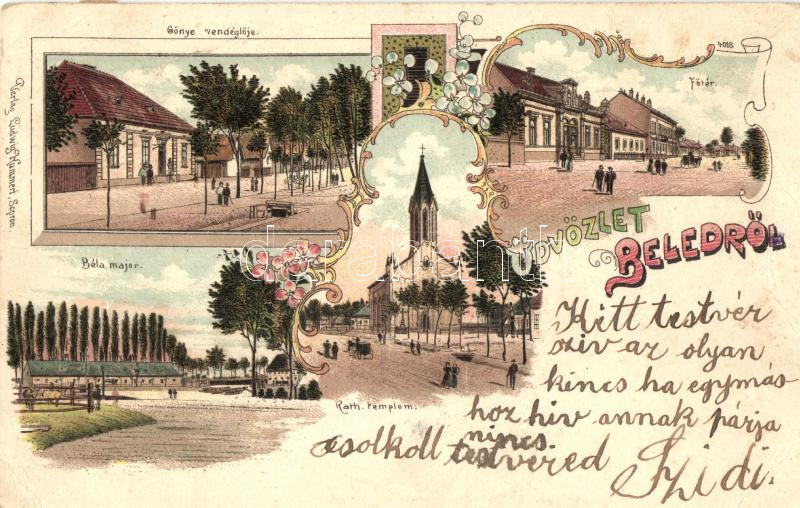 Gönye vendéglöje.
4018
Fötér.
Verlag Ludwig Kummert Sopron.
ÜDVÖZLET
BELEDRÖL
Béla major.
Kath. templom.
Hitt testvér
sziv az olyan
kincs ha egymás
hoz hiv annak párja
nincs
csolkoll testvered Szidi.
darabanth